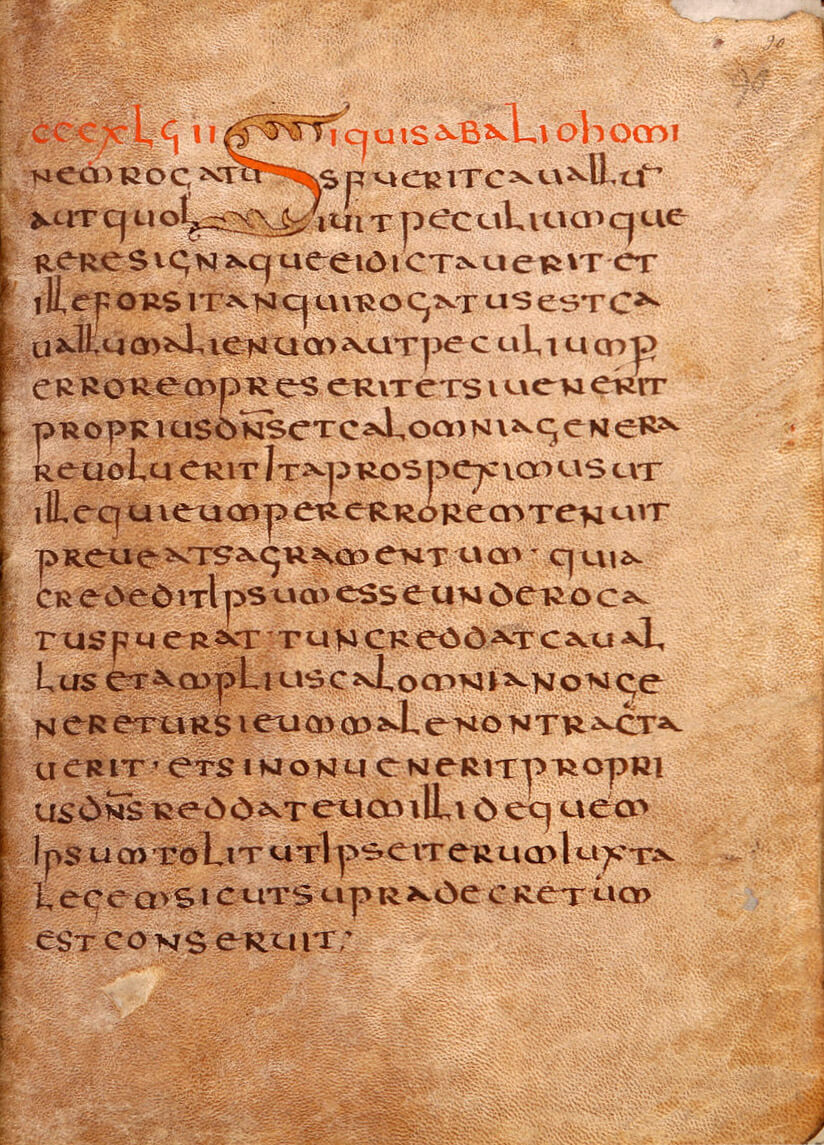 90
90
CCCXLϛII SIQUISABALIOHOMI
NEMROGATUSFUERITCAUALLŪ
AUTQUOLIUITPECULIUMQUE
RERESIGNAQUEEIDICTAUERIT·ET
ILLEFORSITANQUIROGATUSESTCA
UALLUMALIENUMAUTPECULIUMꝑ
ERROREMPRESERITETSIUENERIT
PROPRIUSDN̄SETCALOMNIAGENERA
REUOLUERITITAPROSPEXIMUSUT
ILLEQUIEUMPERERROREMTENUIT
PREUEATSAGRAMENTUM·QUIA
CREDEDITIPSUMESSEUNDEROCA
TUSFUERAT·TUNCREDDATCAUAL
LUSETAMPLIUSCALOMNIANONGE
NERETURSIEUMMALENONTRACTA
UERIT·ETSINONUENERITPROPRI
USDN̄SREDDATEUMILLIDEQUEM
IPSUMTOLITUTIPSEITERUMIUXTA
LEGEMSICUTSUPRADECRETUM
ESTCONSERUIT;